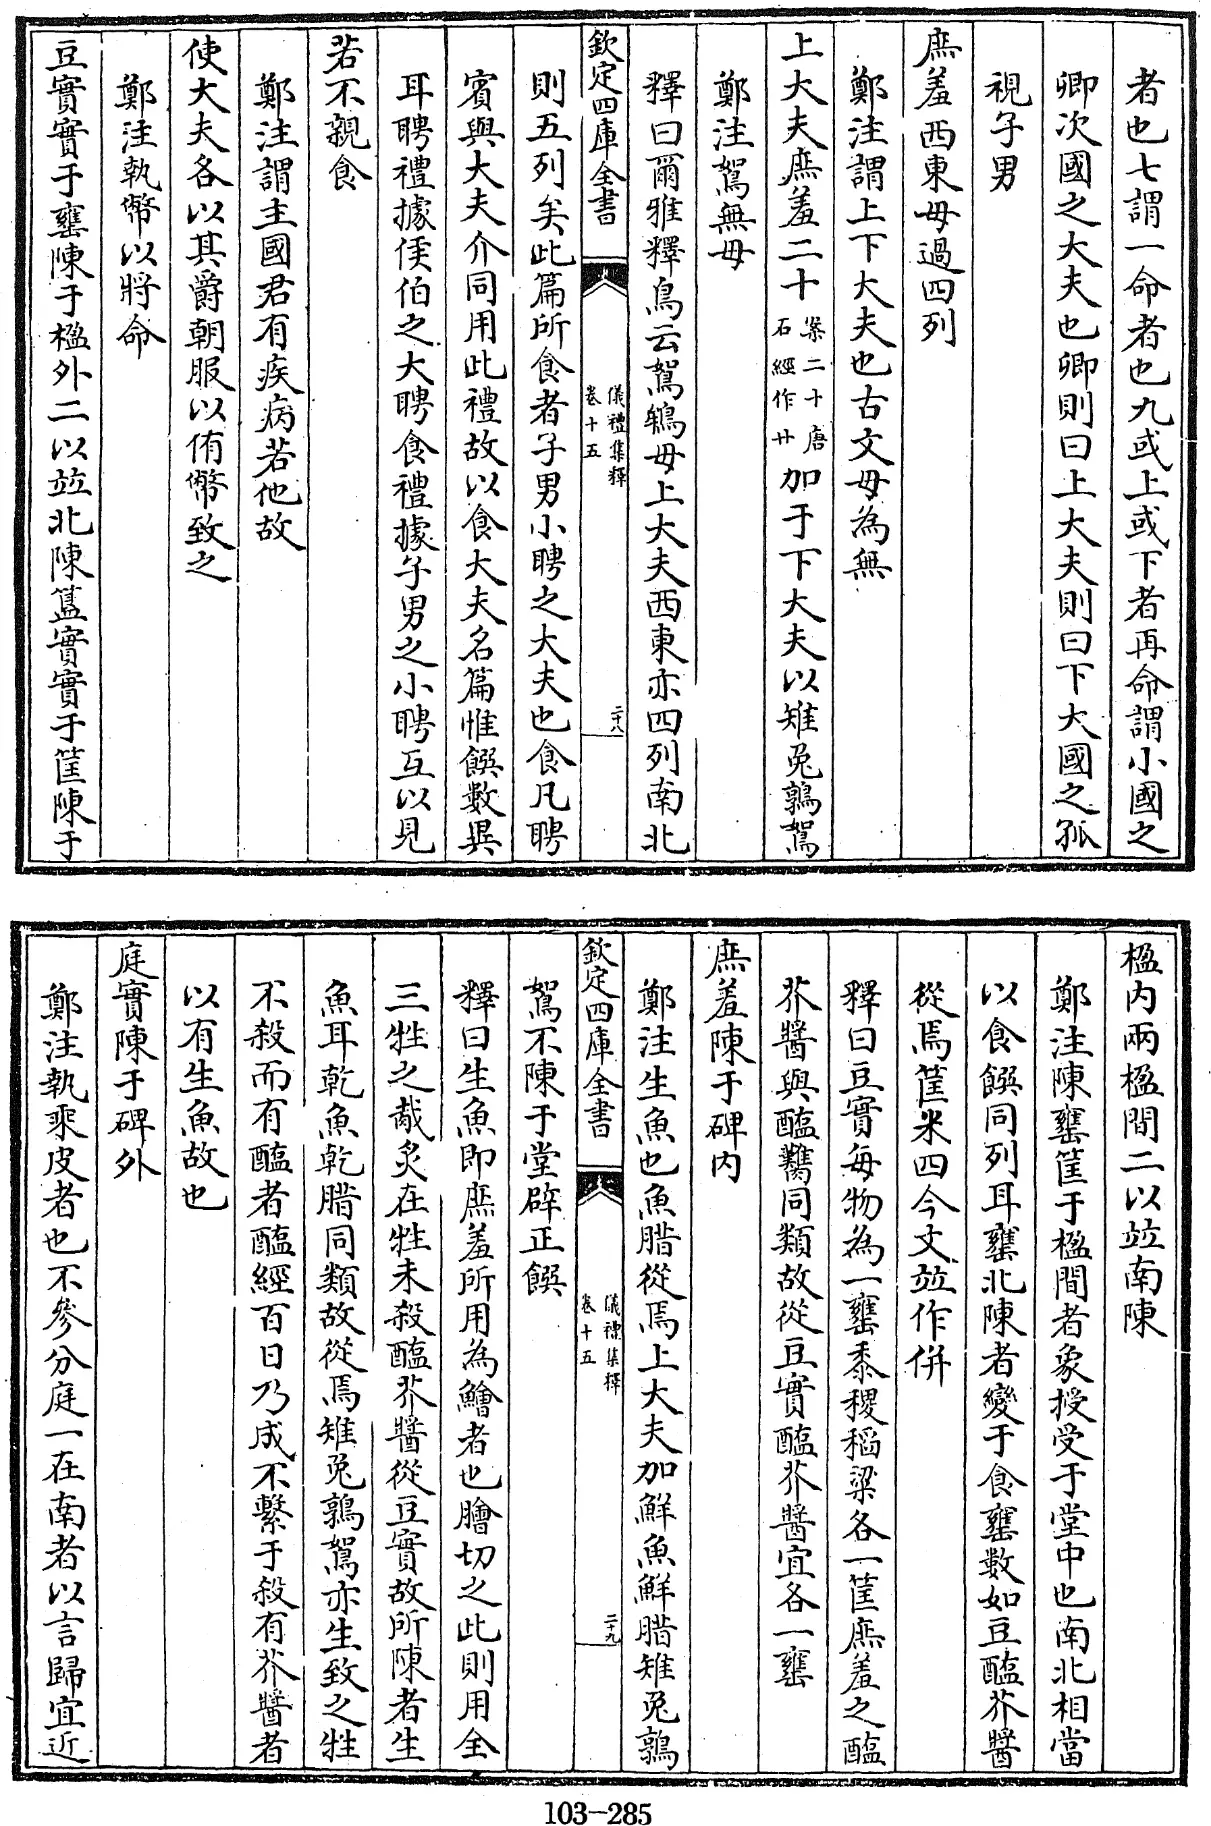 者也七謂一命者也九或上或下者再命謂小國之
卿次國之大夫也卿則曰上大夫則曰下大國之孤
視子男
庶羞西東毋過四列
鄭注謂上下大夫也古文毋為無
上大夫庶羞二十案二十唐石經作廿加于下大夫以雉兔鶉鴽
鄭注鴽無母
釋曰爾雅釋鳥云鴽鴾母上大夫西東亦四列南北
欽定四庫全書
儀禮集釋
卷十五
二十八
則五列矣此篇所食者子男小聘之大夫也食凡聘
賓與大夫介同用此禮故以食大夫名篇惟饌數異
耳聘禮據侯伯之大聘食禮據子男之小聘互以見
若不親食
鄭注謂主國君有疾病若他故
使大夫各以其爵朝服以侑幣致之
鄭注執幣以將命
豆實實于罋陳于楹外二以竝北陳簋實實于筐陳于
楹内兩楹間二以竝南陳
鄭注陳罋筐于楹間者象授受于堂中也南北相當
以食饌同列耳罋北陳者變于食罋數如豆醢芥醬
從焉筐米四今文竝作併
釋曰豆實每物為一罋黍稷稻粱各一筐庶羞之醢
芥醬與醢臡同類故從豆實醢芥醬宜各一罋
庶羞陳于碑内
鄭注生魚也魚腊從焉上大夫加鮮魚鮮腊雉兔鶉
欽定四庫全書
儀禮集釋
卷十五
二十九
鴽不陳于堂辟正饌
釋曰生魚即庶羞所用為鱠者也膾切之此則用全
三牲之胾炙在牲未殺醢芥醬從豆實故所陳者生
魚耳乾魚乾腊同類故從焉雉兔鶉鴽亦生致之牲
不殺而有醢者醢經百日乃成不繫于殺有芥醬者
以有生魚故也
庭實陳于碑外
鄭注執乘皮者也不參分庭一在南者以言歸宜近
103-285